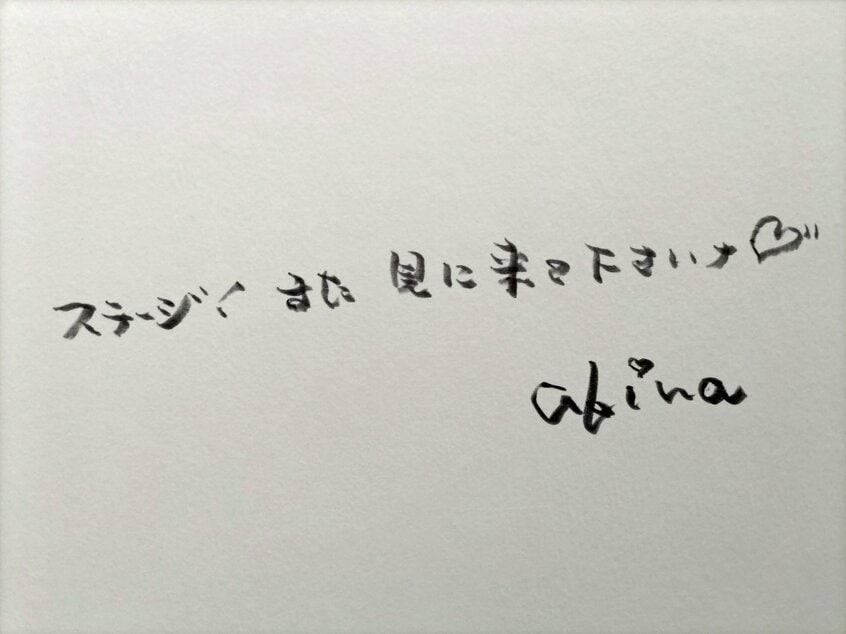 ステージ! また 見に来て下さいナ♡
akina